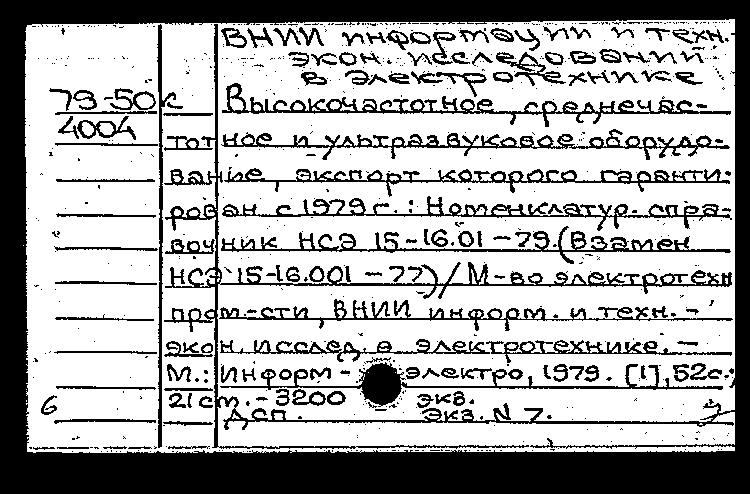 ВНИИ информации и техн.-
экон. исследований
в электротехнике
79-50к Высокочастотное, среднечас-
4004 тотное и ультразвуковое оборудо-
вание, экспорт которого гаранти-
рован с 1979 г.: Номенклатур. спра-
вочник НСЭ 15-16.01-79. (Взамен
НСЭ 15-16.001-77) / М-во электротехн
пром-сти, ВНИИ информ. и техн.-
экон. исслед. в электротехнике. -
М.: Информ- электро, 1979. [1], 52с.;
21 см. - 3200 экз.
6 Дсп. Экз. N 7.